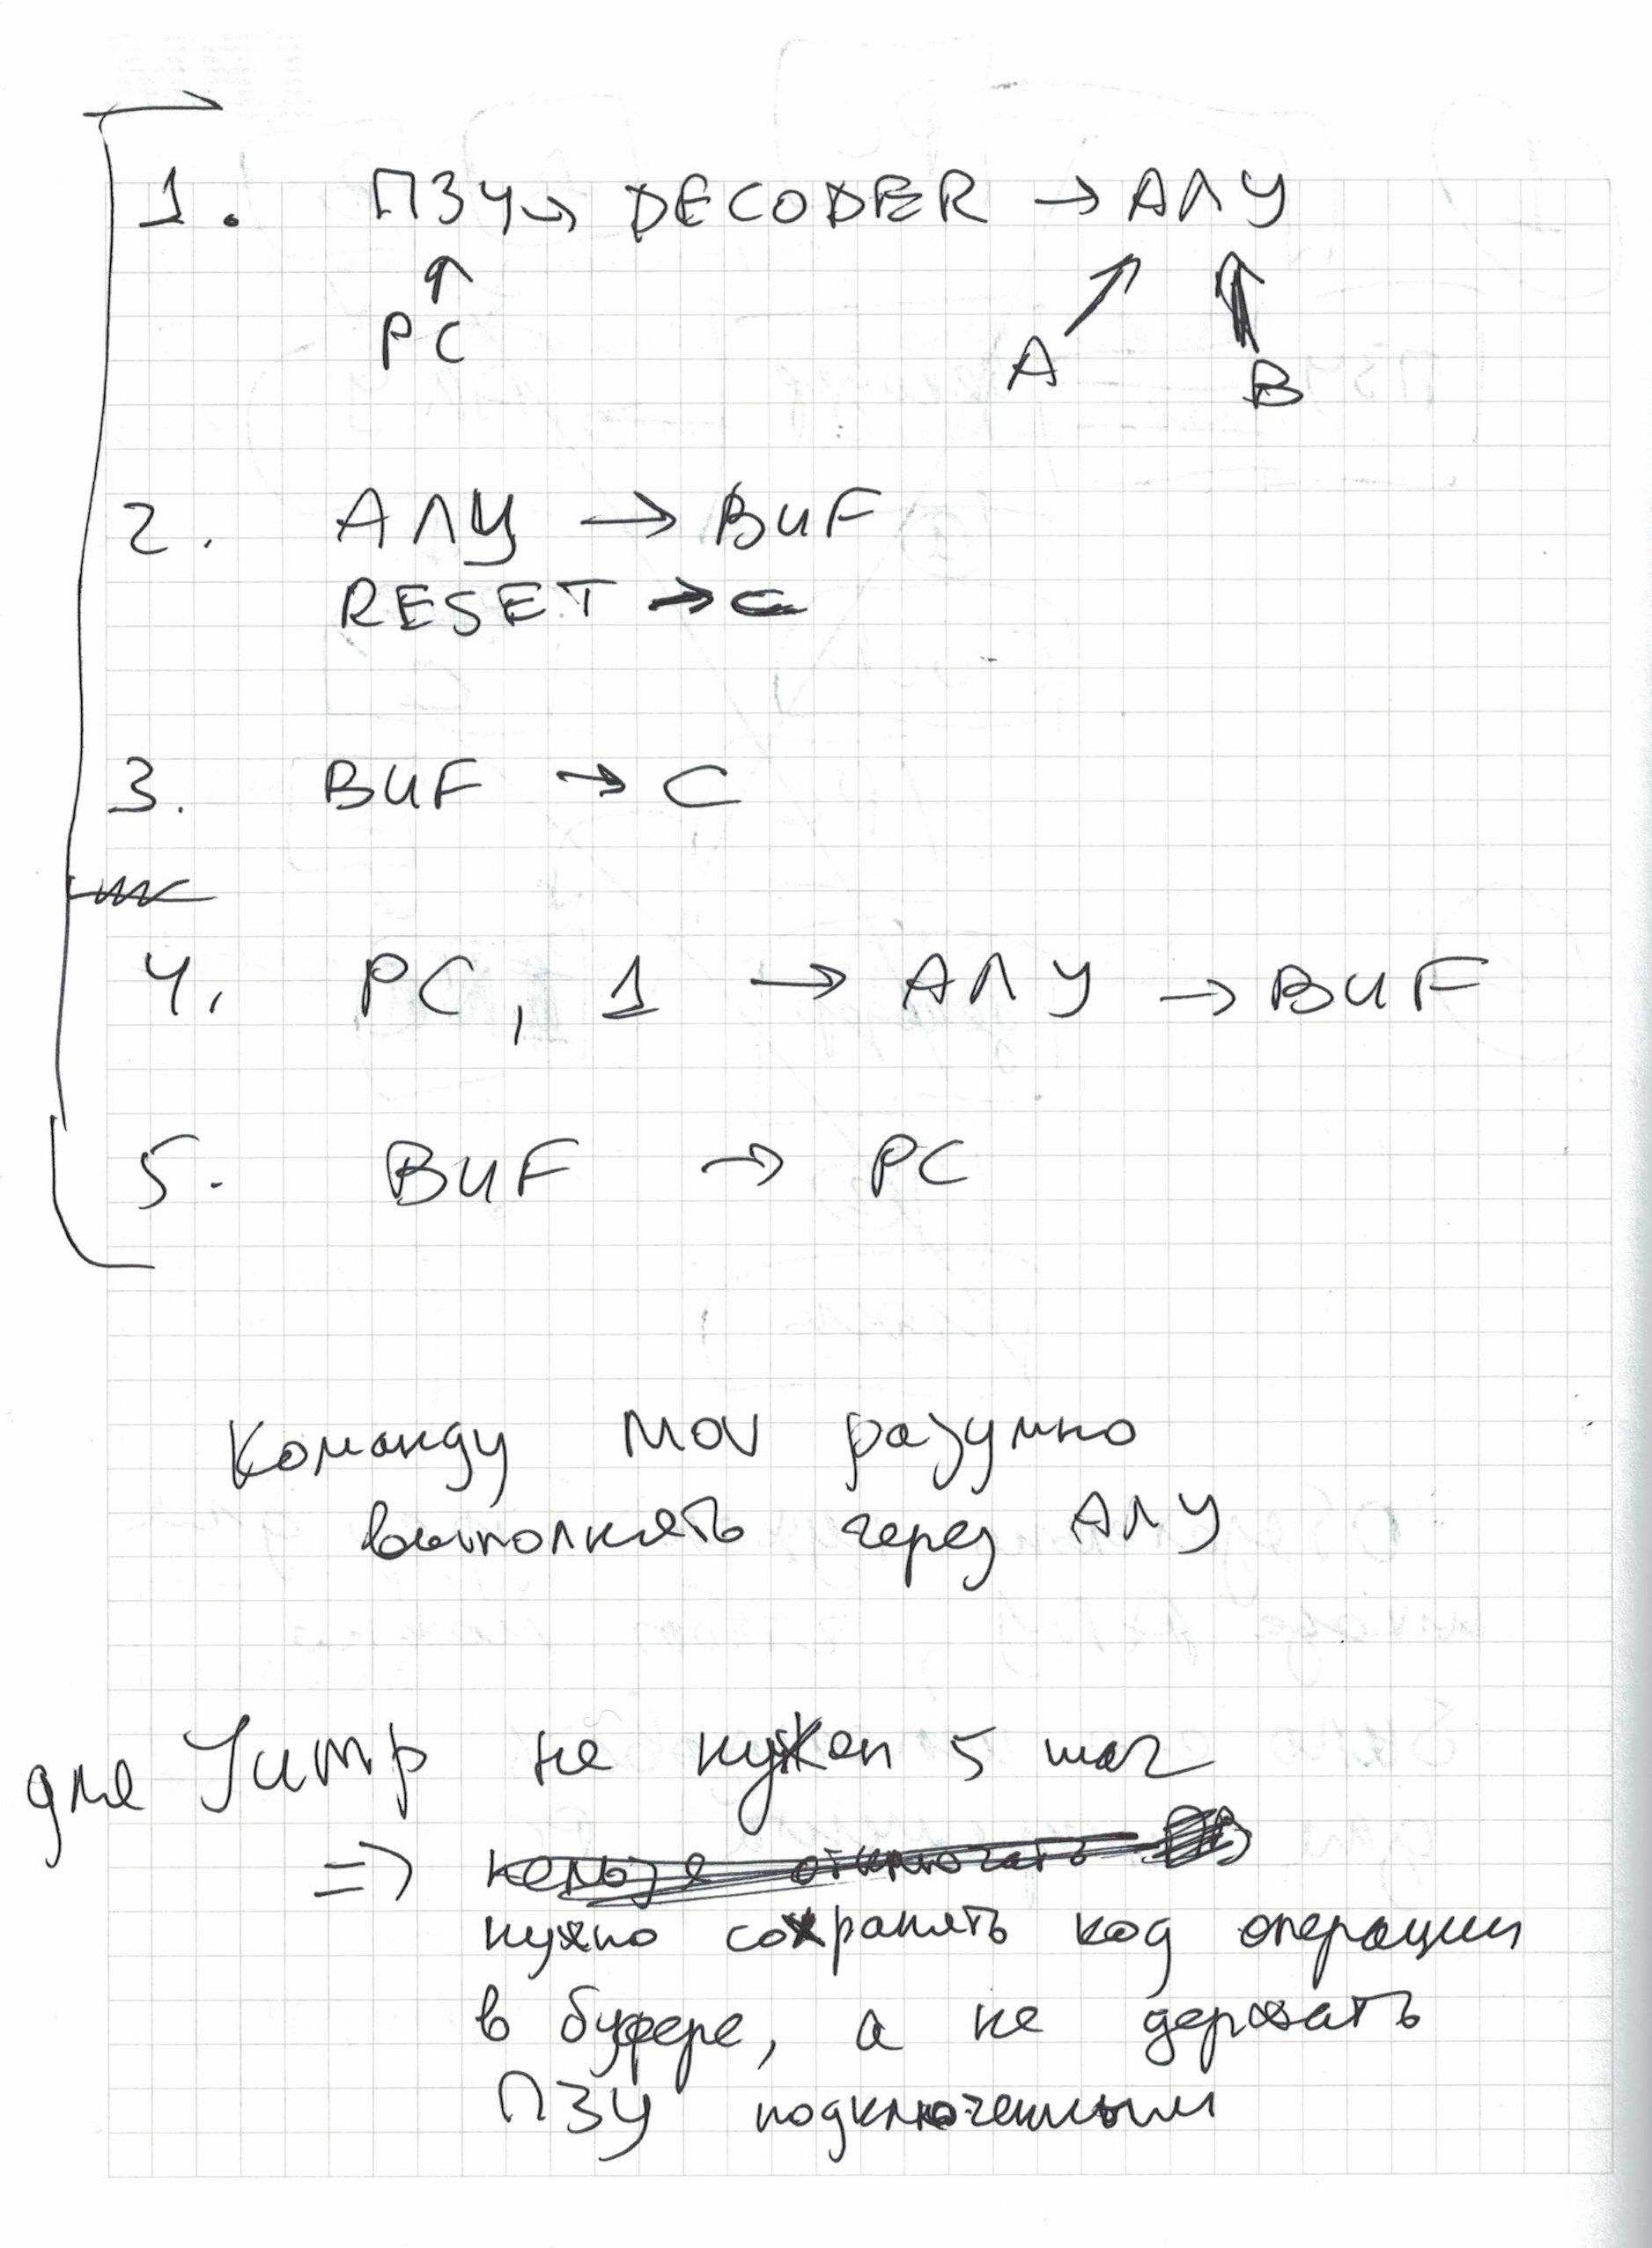 1. ПЗУ → DECODER → АЛУ
↑ ↗ ↑
PC A B
2. АЛУ → BUF
RESET → C
3. BUF → C
4. PC, 1 → АЛУ → BUF
5. BUF → PC
Команду MOV разумно
выполнять через АЛУ
для Jump не нужен 5 шаг
=> нельзя отключать
нужно сохранять код операции
в буфере, а не держать
ПЗУ подключенным